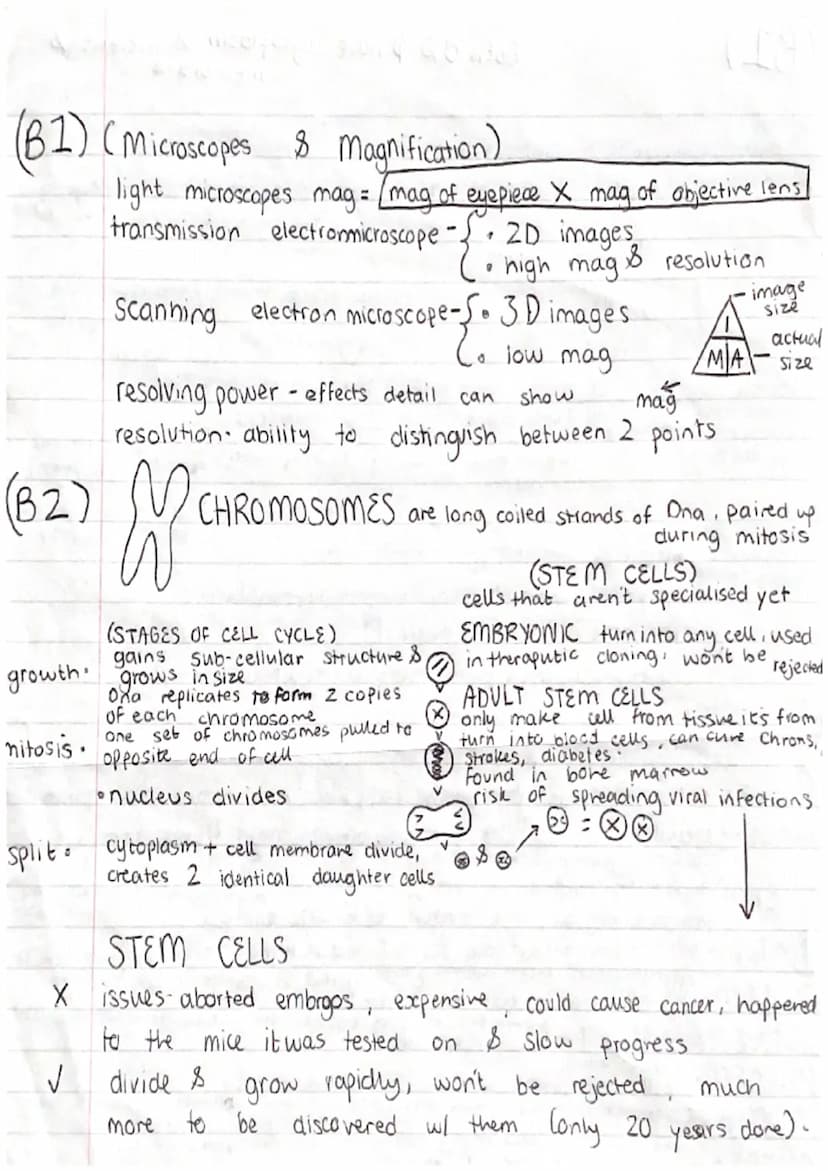 (B1) (Microscopes & Magnification)
light microscopes mag = mag of eyepiece X mag of objective lens
transmission electronmicroscope - { • 2D images
• high mag & resolution
scanning electron microscope - { • 3D images
• low mag
image size
I
M A
actual size
mag
resolving power - effects detail can show
resolution - ability to distinguish between 2 points
(B2) CHROMOSOMES are long coiled strands of Dna, paired up
during mitosis
(STAGES OF CELL CYCLE)
growth • gains sub-cellular structure &
grows in size
Dna replicates to form 2 copies
of each chromosome
mitosis • one set of chromosomes pulled to
opposite end of cell
• nucleus divides
split • cytoplasm + cell membrane divide,
creates 2 identical daughter cells
&
=
(STEM CELLS)
cells that aren't specialised yet
EMBRYONIC turn into any cell, used
in theraputic cloning, won't be rejected
ADULT STEM CELLS
only make cell from tissue it's from
turn into blood cells, can cure Chrons,
strokes, diabetes.
Found in bone marrow
risk of spreading viral infections
STEM CELLS
X issues - aborted embryos, expensive, could cause cancer, happened
to the mice it was tested on & slow progress
✓ divide & grow rapidly, won't be rejected, much
more to be discovered w/ them (only 20 years done).